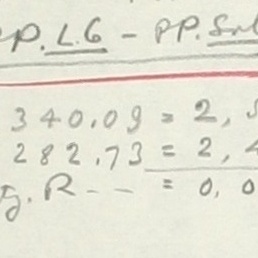 PP. L.G - PP.
340.09 = 2,
282.73 = 2, 4
g. R - - = 0, 0